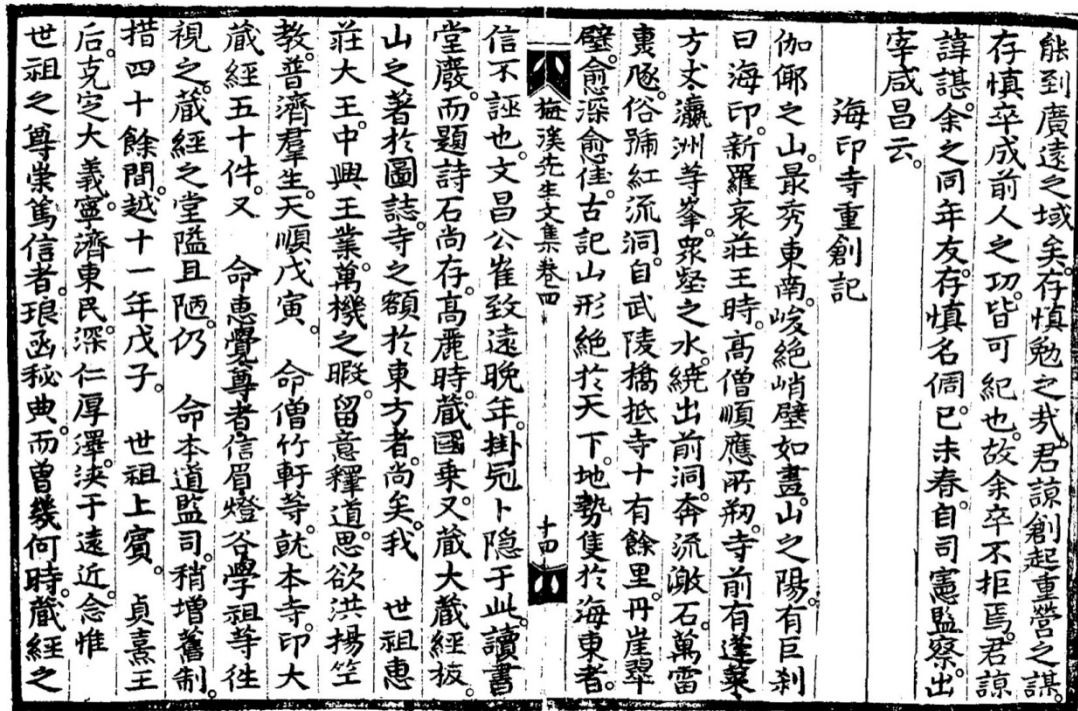 能到廣遠之域矣。存慎勉之哉。君諒創起重營之謀。
存慎卒成前人之功。皆可紀也。故余卒不拒焉。君諒
諱諶。余之同年友。存慎名倜。已未春。自司憲監察出
宰咸昌云。
海印寺重創記
伽倻之山。最秀東南。峻絶峭壁如畫。山之陽。有巨刹
曰海印。新羅哀莊王時。高僧順應所刱。寺前有蓬萊
方丈瀛洲等峯。衆壑之水。繞出前洞。奔流激石。萬雷
裏豗。俗號紅流洞。自武陵橋抵寺十有餘里。丹崖翠
壁。愈深愈佳。古記山形絶於天下。地勢隻於海東者。
梅溪先生文集卷四
十四
信不誣也。文昌公崔致遠晩年。掛冠卜隱于此。讀書
堂巖。而題詩石尚存。高麗時。藏國乘。又藏大藏經板。
山之著於圖誌。寺之額於東方者。尚矣。我 世祖惠
莊大王中興王業。萬機之暇。留意釋道。思欲洪揚竺
教。普濟羣生。天順戊寅。 命僧竹軒等。就本寺。印大
藏經五十件。又 命惠覺尊者信眉燈谷學祖等徃
視之。藏經之堂隘且陋。仍 命本道監司。稍增舊制。
措四十餘間。越十一年戊子。 世祖上賓。 貞熹王
后。克定大義。寧濟東民。深仁厚澤。浹于遠近。念惟
世祖之尊崇篤信者。琅函秘典。而曾幾何時。藏經之